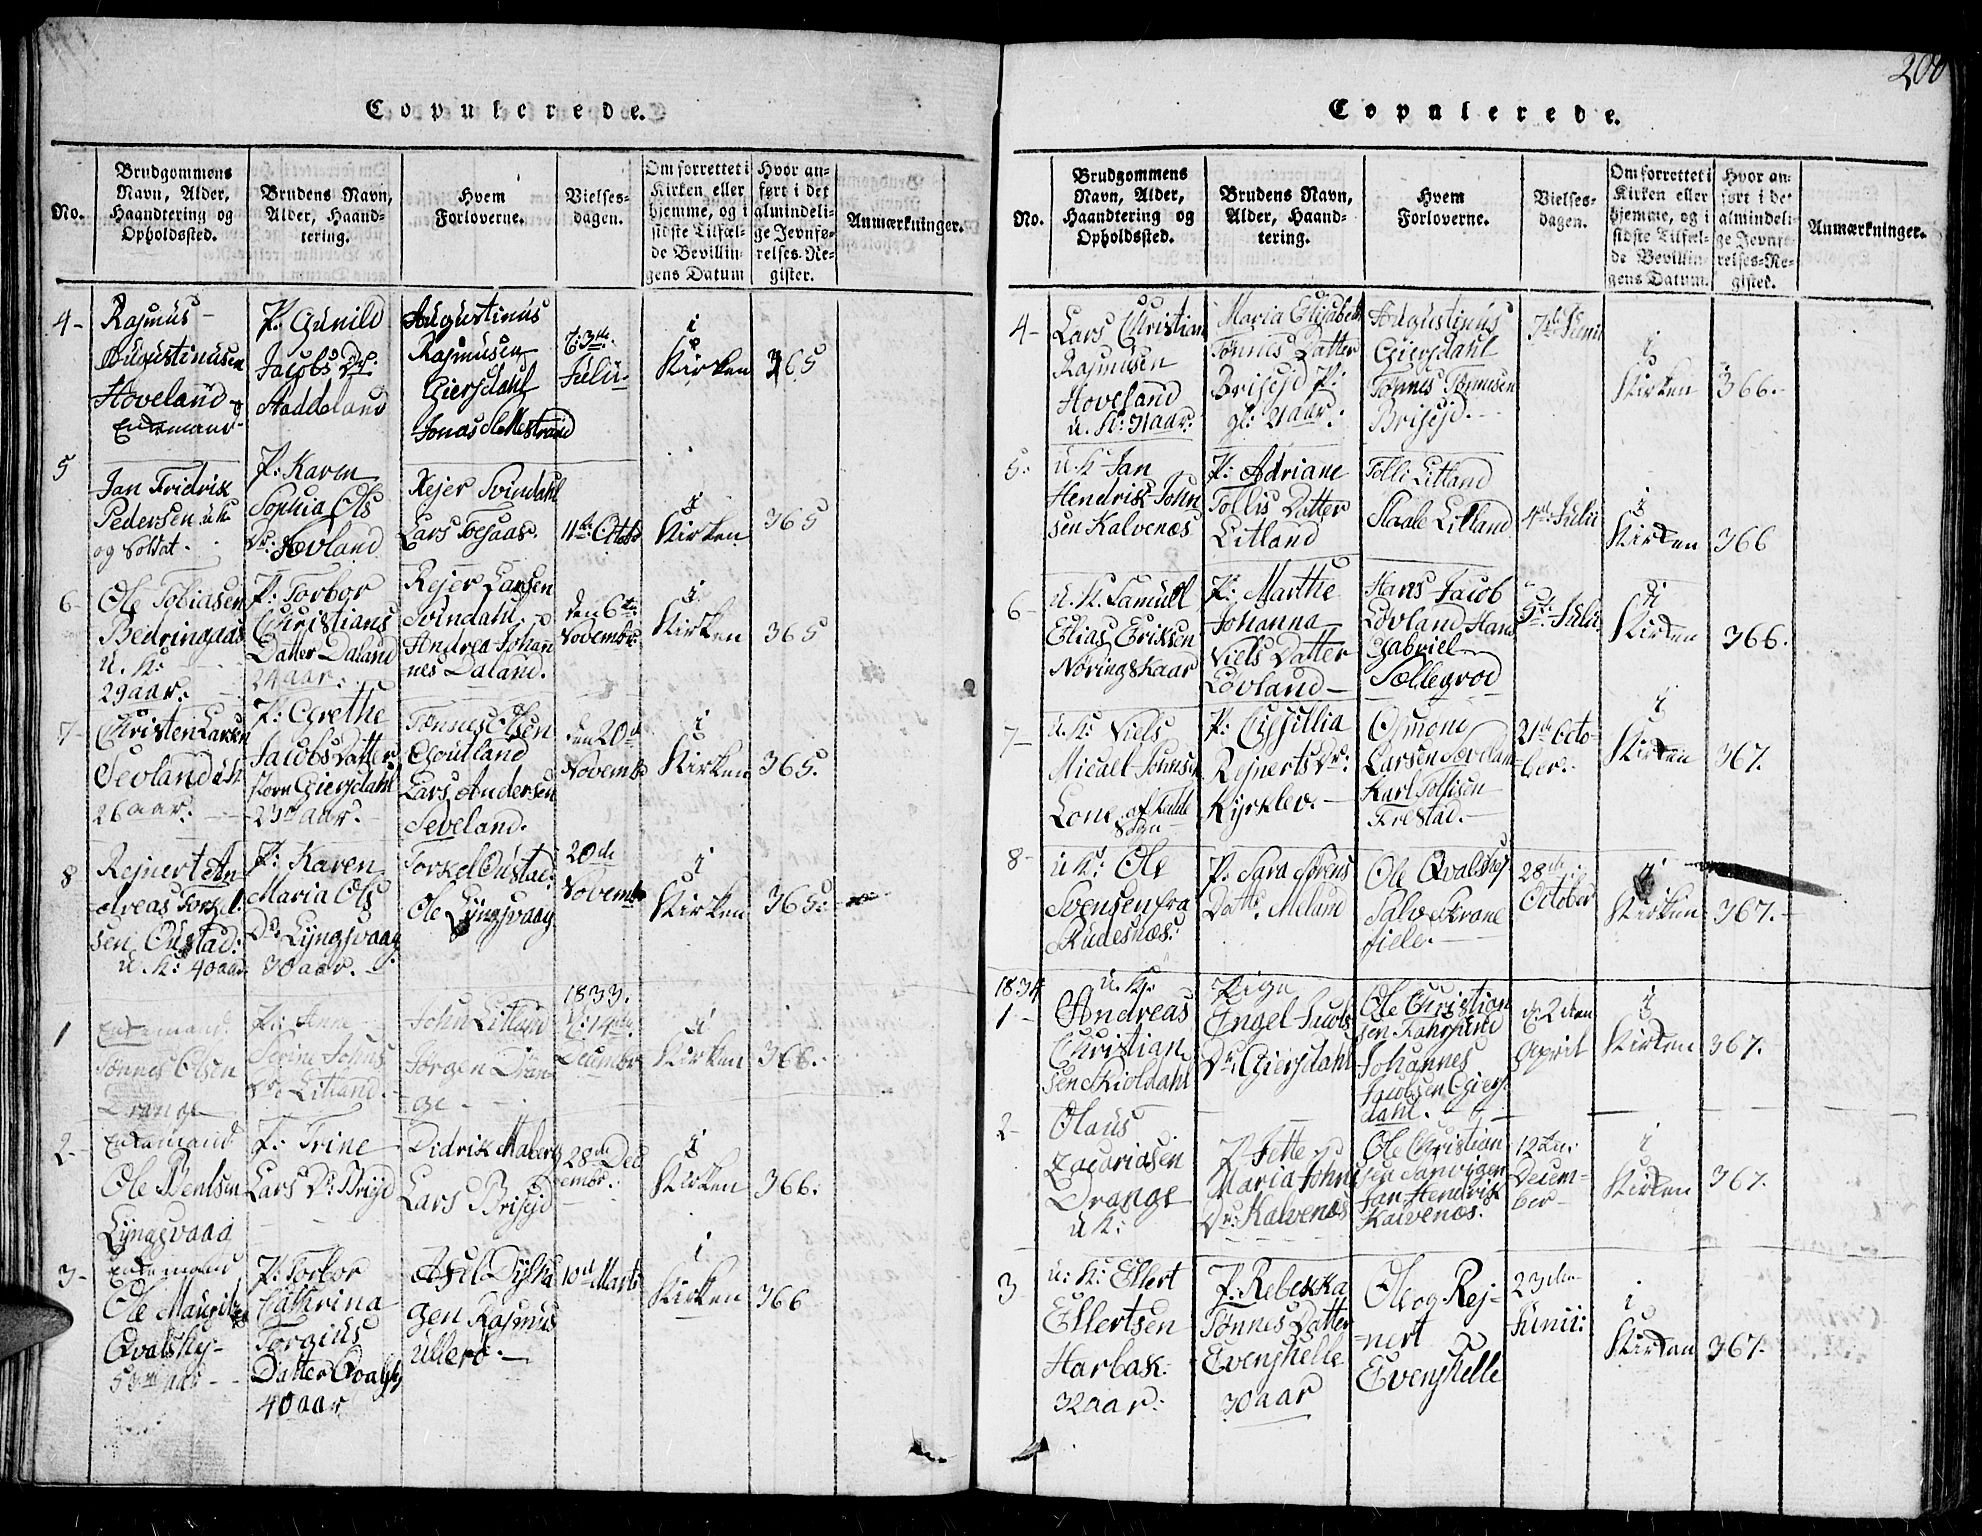 Copulerede.
No.
Brudgommens
Navn, Alder,
Haandtering og
Opholdssted.
Brudens Navn,
Alder, Haand-
tering.
Hvem
Forloverne.
Vielses-
dagen.
Om forrettet i
Kirken eller
hjemme, og i
sidste Tilfæl-
de Bevillin-
gens Datum
Hvor an-
ført i det
almindeli-
ge Jevnfø-
relses-Re-
gister.
Anmærkninger.
4-
Rasmus
Augustinusen
Hoveland
Enkemand
P: Gunild
Jacobs Dr:
Staddeland
Augustinus
Rasmusen
Giersdahl
Jonas
d: 3die
Julii
i
Kirken
365
5
Jan Fridrik
Pedersen u k
og Soldat.
P: Karen
Sophia Ols
Dr: Hovland
Rejer Svindahl
Lars
11te Octob
i
Kirken
365
6-
Ole Tobiasen
Bedringaas
u. K:
29 aar:
P: Torbor
Christians
Datter Daland
24 aar:
Rejer Larsen
Svindahl.
Andrea Johan
nes Daland.
den 6te
Novembr
i
Kirken
365
7-
Christen Larsen
Sevland u k
26 aar:
P: Grethe
Jacobs Datter
Giersdahl
23 aar.
Tønnes Olsen
Lars Andersen
Seveland.
den 20de
Novemb
i
Kirken
365.
8
Rejnert An
dreas Torkel:
sen Oustad:
u. K: 40 aar
P: Karen
Maria Ols
Dr Lyngsvaag
30 aar.
Torkel Oustad:
Ole Lyngsvaag
20de
Novemb
i
Kirken
365:
1833.
1
Enkemand
Tønnes Olsen
Drange
P: Anne
Serine Johns
Dr: Litland.
John Litland
Jørgen Dran
ge
d: 14de
Decembr
i
Kirken
366:
2-
Enkemand
Ole Bentsen
Lyngsvaag
P: Trine
Lars Dr: Brisejd
Didrik Maberg
Lars Brisejd
28de Dec
embr:
i
Kirken
366:
3-
Enkemand
Ole Mauritz
Qvalsky
P: Torbor
Cathrina
Torgius
Datter Qvalsky
40 aar
Axel
gen Rasmus
Ullerø.
10de Marts
i
Kirken
366
200
Copulerede.
No.
Brudgommens
Navn, Alder,
Haandtering og
Opholdssted.
Brudens Navn,
Alder, Haand-
tering.
Hvem
Forloverne.
Vielses-
dagen.
Om forrettet i
Kirken eller
hjemme, og i
sidste Tilfæl-
de Bevillin-
gens Datum.
Hvor an-
ført i det
almindeli-
ge Jevnfø-
relses-Re-
gister.
Anmærkninger.
4-
Lars Christian
Rasmusen
Hoveland
u. K: 31 aar:
Maria Elisabet
Tønnes Datter
Brisejd P:
gl: 21 aar:
Augustinus
Giersdahl
Tønnes Tønnesen
Brisejd.
7de Junii
i
Kirken
366.
5:
u. K Jan
Hendrik John
sen Kalvenæs
P: Adriane
Tollis Datter
Litland
Tolli Litland
Staale Litland
4de Julii
i
Kirken
366
6-
u. K. Samuel
Elias Eriksen
Noringskaar
P: Marthe
Johanna
Niels Datter
Løvland
Hans Jacob
Løvland Hans
Gabriel
Sællegrod
5te Julii
i
Kirken
366.
7-
u. K: Niels
Micael Johnsen
Lone af Halle
Sogn
P: Cissillia
Rejnerts Dr:
Kyrklev.
Osmone
Larsen
Karl Tollisen
Frestad.
21de Octo-
ber.
i
Kirken
367.
8-
u. K: Ole
Svensen fra
Skudesnæs:
P: Sara Sørens
Datt: Meland
Ole Qvalsky
Salve Trane
fiele.
28de
October
i
Kirken
367.
1834
1-
u. K:
Andreas
Christian
sen Kioldahl
Pige
Engel Jacobs
Dr: Giersdahl
Ole Christian
sen
Johannes
Jacobsen Giers
dahl.
d: 2den
April
i
Kirken
367.
2-
Olaus
Zacariasen
Drange
u. K:
P. Jette
Maria Johns
Dr: Kalvenæs
Ole Christian
sen Sanvigen
Jan Hendrik
Kalvenæs.
12te
Decem-
ber
i
Kirken
367.
3-
u: K: Ellert
Ellertsen
Harbak:
32 aar:
P. Rebekka
Tønnes Datter
Evenshelle
30 aar
Ole og Rej-
nert
Evenshelle
23de
Junii:
i
Kirken
367.